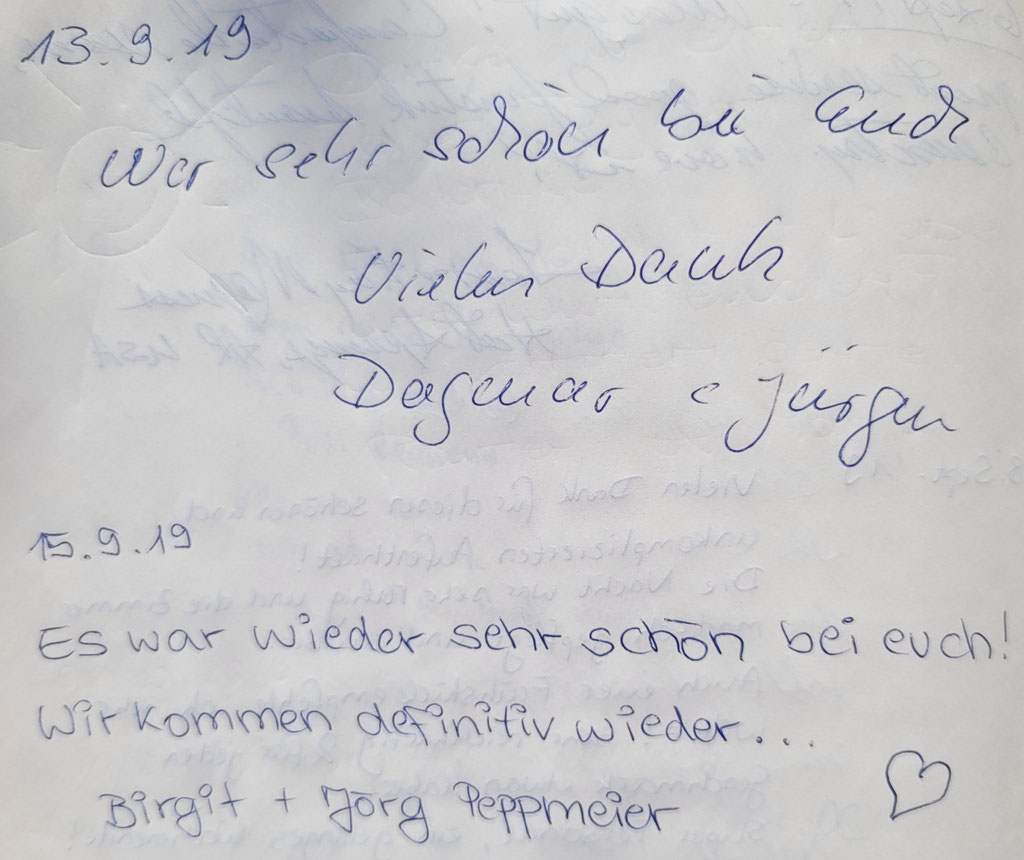 13.9.19
War sehr schön bei Euch
Vielen Dank
Dagmar & Jürgen
15.9.19
Es war wieder sehr schön bei euch!
Wir kommen definitiv wieder...
Birgit + Jörg Peppmeier